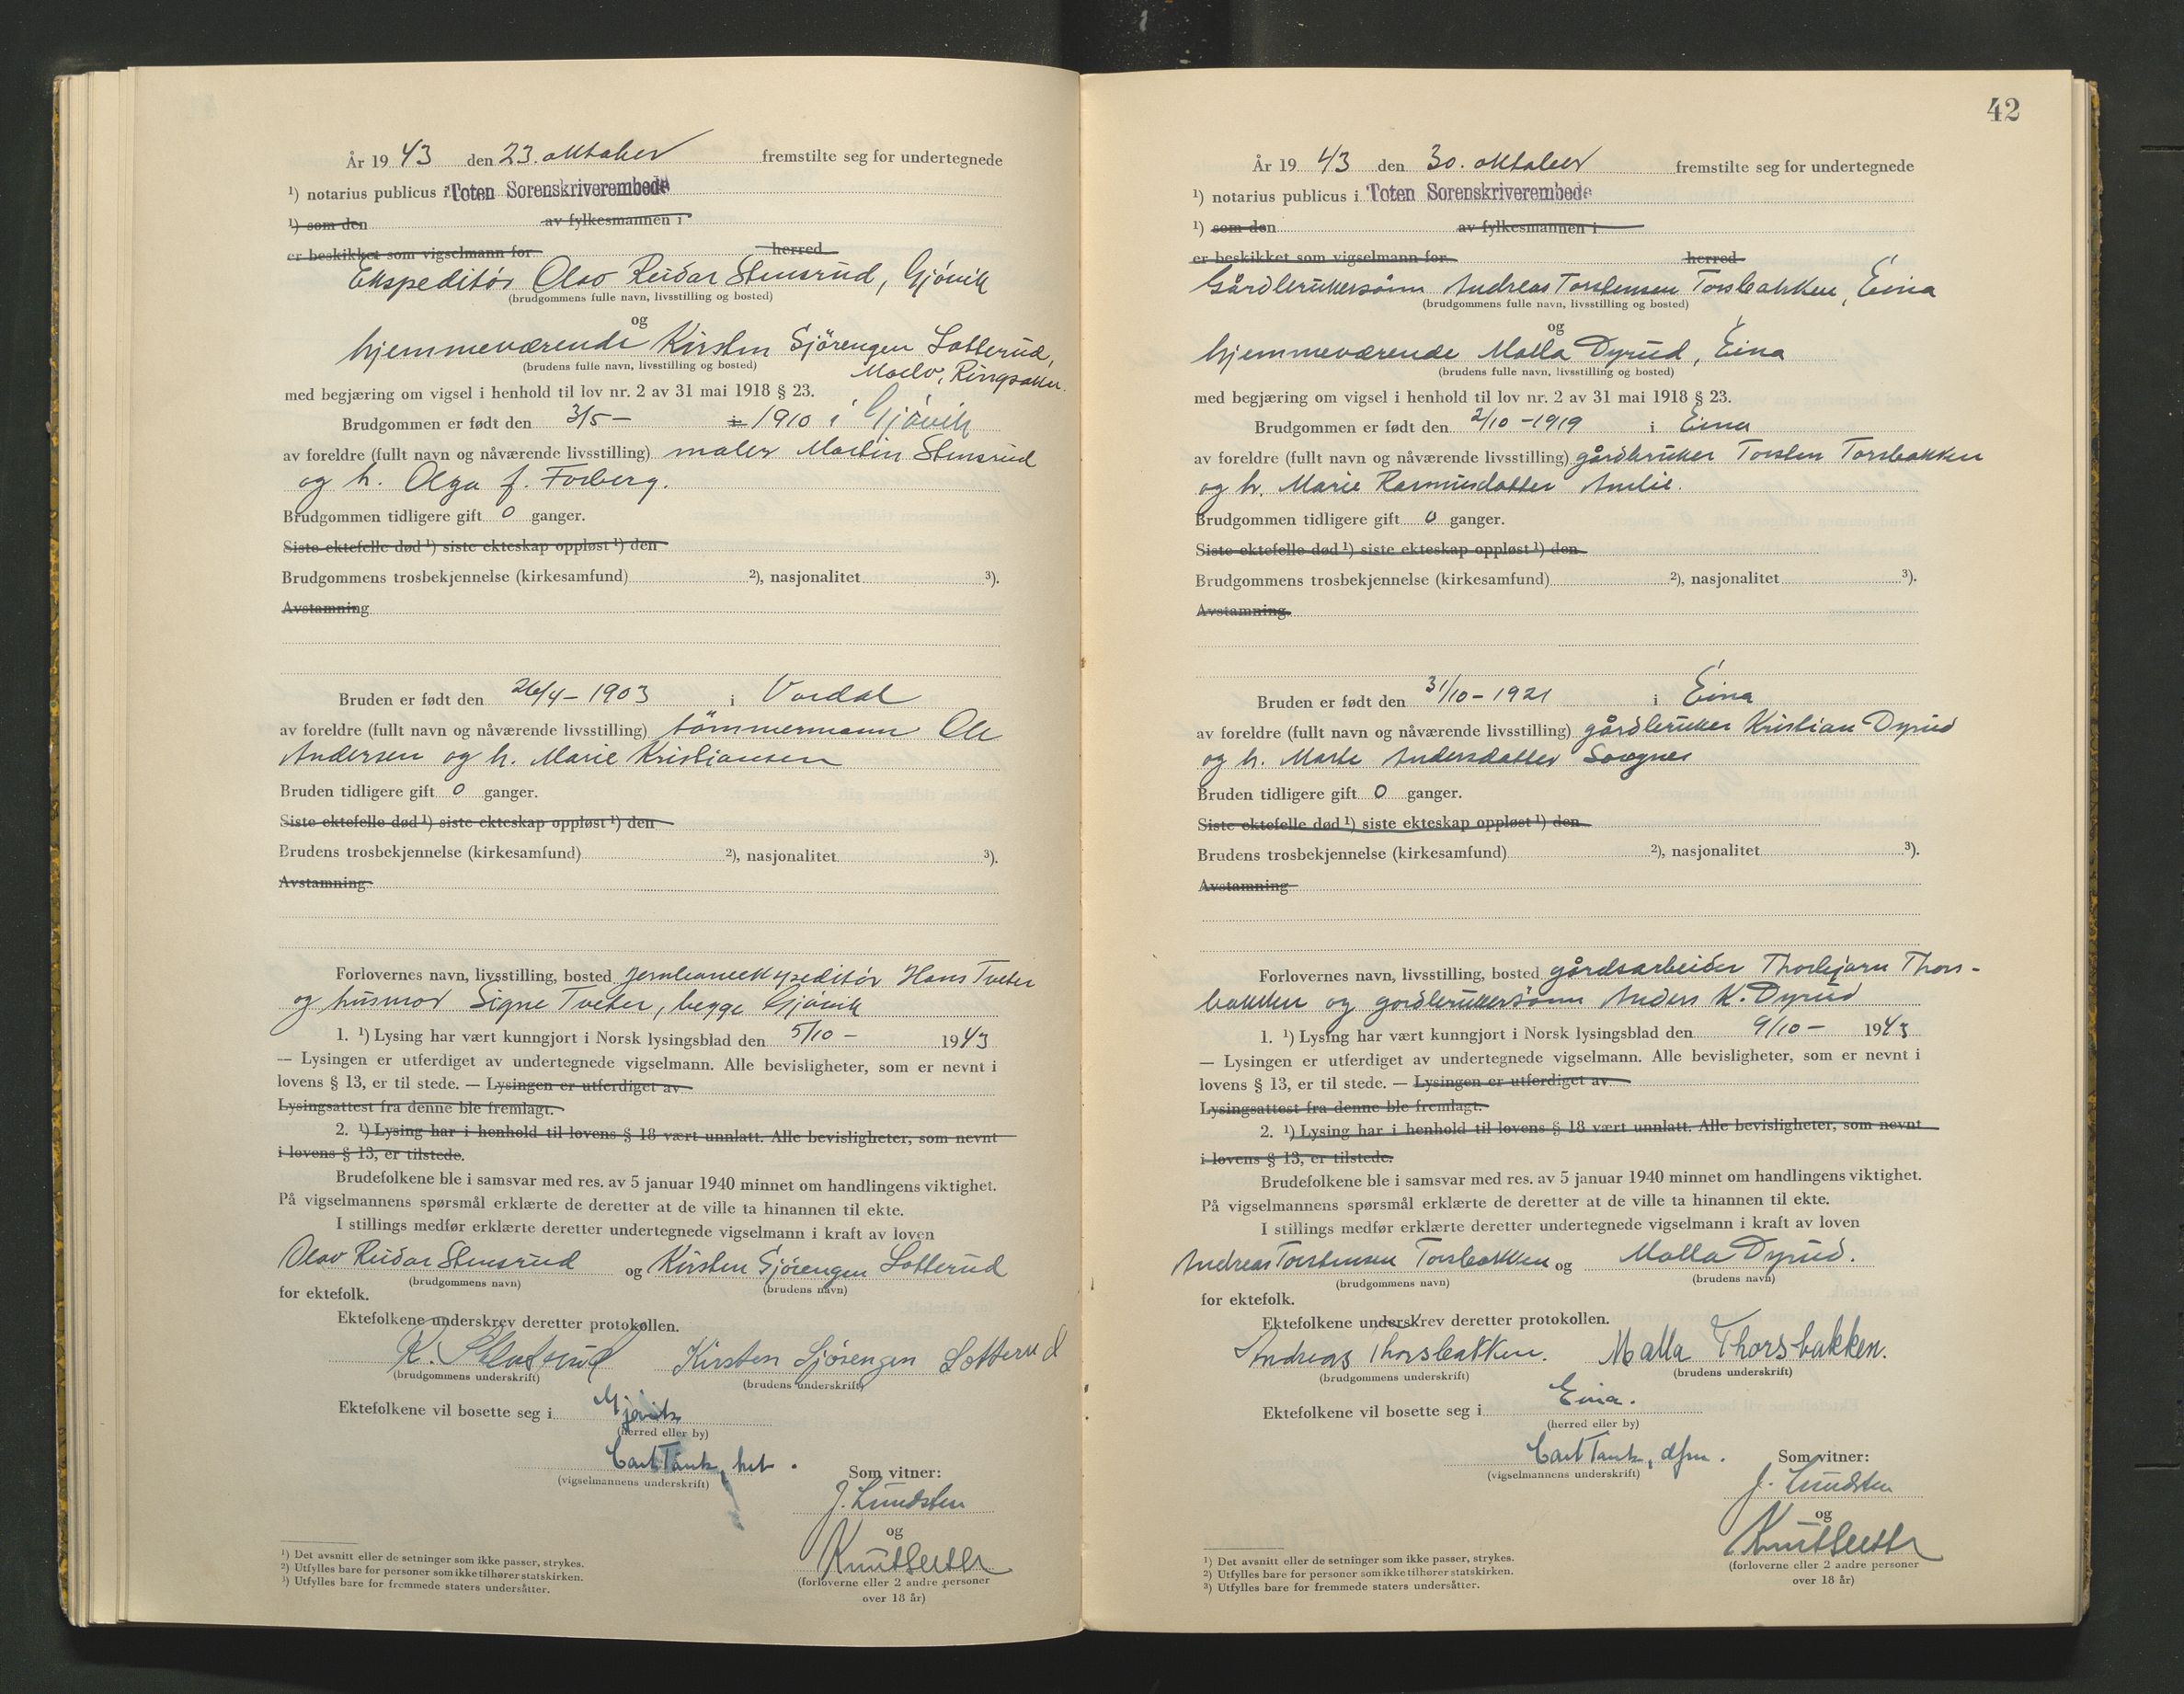 År 19 43 den 23. oktober fremstilte seg for undertegnede
¹) notarius publicus i Toten Sorenskriverembede
¹) som den av fylkesmannen i
er beskikket som vigselmann for herred
Ekspeditør Olav Reidar Stensrud, Gjøvik
(brudgommens fulle navn, livsstilling og bosted)
og
hjemmeværende Kirsten Sjörengen Lotterud,
(brudens fulle navn, livsstilling og bosted)
Moelv, Ringsaker.
med begjæring om vigsel i henhold til lov nr. 2 av 31 mai 1918 § 23.
Brudgommen er født den 3/5 – i 1910 i Gjøvik
av foreldre (fullt navn og nåværende livsstilling) maler Martin Stensrud
og h. Olga f. Forberg.
Brudgommen tidligere gift 0 ganger.
Siste ektefelle død ¹) siste ekteskap oppløst ¹) den
Brudgommens trosbekjennelse (kirkesamfund) ²), nasjonalitet ³).
Avstamning
Bruden er født den 26/4 – 1903 i Vardal
av foreldre (fullt navn og nåværende livsstilling) tömmermann Ole
Andersen og h. Marie Kristiansen
Bruden tidligere gift 0 ganger.
Siste ektefelle død ¹) siste ekteskap oppløst ¹) den
Brudens trosbekjennelse (kirkesamfund) ²), nasjonalitet ³).
Avstamning
Forlovernes navn, livsstilling, bosted jernbaneekspeditør Hans Tveter
og husmor Signe Tveter, begge Gjøvik
1. ¹) Lysing har vært kunngjort i Norsk lysingsblad den 5/10 – 1943
— Lysingen er utferdiget av undertegnede vigselmann. Alle bevisligheter, som er nevnt i
lovens § 13, er til stede. — Lysingen er utferdiget av
Lysingsattest fra denne ble fremlagt.
2. ¹) Lysing har i henhold til lovens § 18 vært unnlatt. Alle bevisligheter, som nevnt
i lovens § 13, er tilstede.
Brudefolkene ble i samsvar med res. av 5 januar 1940 minnet om handlingens viktighet.
På vigselmannens spørsmål erklærte de deretter at de ville ta hinannen til ekte.
I stillings medfør erklærte deretter undertegnede vigselmann i kraft av loven
Olav Reidar Stensrud og Kirsten Sjörengen Lotterud
(brudgommens navn) (brudens navn)
for ektefolk.
Ektefolkene underskrev deretter protokollen.
R. Stensrud Kirsten Sjörengen Lotterud
(brudgommens underskrift) (brudens underskrift)
Ektefolkene vil bosette seg i Gjøvik
(herred eller by)
Carl Tank,
(vigselmannens underskrift)
Som vitner:
J. Lundsten
og
(forloverne eller 2 andre personer
over 18 år)
¹) Det avsnitt eller de setninger som ikke passer, strykes.
²) Utfylles bare for personer som ikke tilhører statskirken.
³) Utfylles bare for fremmede staters undersåtter.
42
År 19 43 den 30. oktober fremstilte seg for undertegnede
¹) notarius publicus i Toten Sorenskriverembede
¹) som den av fylkesmannen i
er beskikket som vigselmann for herred
Gårdbrukersønn Andreas Torstensen Torsbakken, Eina
(brudgommens fulle navn, livsstilling og bosted)
og
hjemmeværende Malla Dyrud, Eina
(brudens fulle navn, livsstilling og bosted)
med begjæring om vigsel i henhold til lov nr. 2 av 31 mai 1918 § 23.
Brudgommen er født den 2/10 – 1919 i Eina
av foreldre (fullt navn og nåværende livsstilling) gårdbruker Torsten Torsbakken
og h. Marie Rasmusdatter
Brudgommen tidligere gift 0 ganger.
Siste ektefelle død ¹) siste ekteskap oppløst ¹) den
Brudgommens trosbekjennelse (kirkesamfund) ²), nasjonalitet ³).
Avstamning
Bruden er født den 31/10 – 1921 i Eina
av foreldre (fullt navn og nåværende livsstilling) gårdbruker Kristian Dyrud
og h. Marte Andersdatter Sorgnes
Bruden tidligere gift 0 ganger.
Siste ektefelle død ¹) siste ekteskap oppløst ¹) den
Brudens trosbekjennelse (kirkesamfund) ²), nasjonalitet ³).
Avstamning
Forlovernes navn, livsstilling, bosted gårdsarbeider Thorbjørn Thors-
bakken og gårdbrukersønn Anders K. Dyrud
1. ¹) Lysing har vært kunngjort i Norsk lysingsblad den 9/10 – 1943
— Lysingen er utferdiget av undertegnede vigselmann. Alle bevisligheter, som er nevnt i
lovens § 13, er til stede. — Lysingen er utferdiget av
Lysingsattest fra denne ble fremlagt.
2. ¹) Lysing har i henhold til lovens § 18 vært unnlatt. Alle bevisligheter, som nevnt
i lovens § 13, er tilstede.
Brudefolkene ble i samsvar med res. av 5 januar 1940 minnet om handlingens viktighet.
På vigselmannens spørsmål erklærte de deretter at de ville ta hinannen til ekte.
I stillings medfør erklærte deretter undertegnede vigselmann i kraft av loven
Andreas Torstensen Torsbakken og Malla Dyrud.
(brudgommens navn) (brudens navn)
for ektefolk.
Ektefolkene underskrev deretter protokollen.
Andreas Thorsbakken. Malla Thorsbakken.
(brudgommens underskrift) (brudens underskrift)
Ektefolkene vil bosette seg i Eina.
(herred eller by)
Carl Tank, dfm.
(vigselmannens underskrift)
Som vitner:
J. Lundsten
og
(forloverne eller 2 andre personer
over 18 år)
¹) Det avsnitt eller de setninger som ikke passer, strykes.
²) Utfylles bare for personer som ikke tilhører statskirken.
³) Utfylles bare for fremmede staters undersåtter.